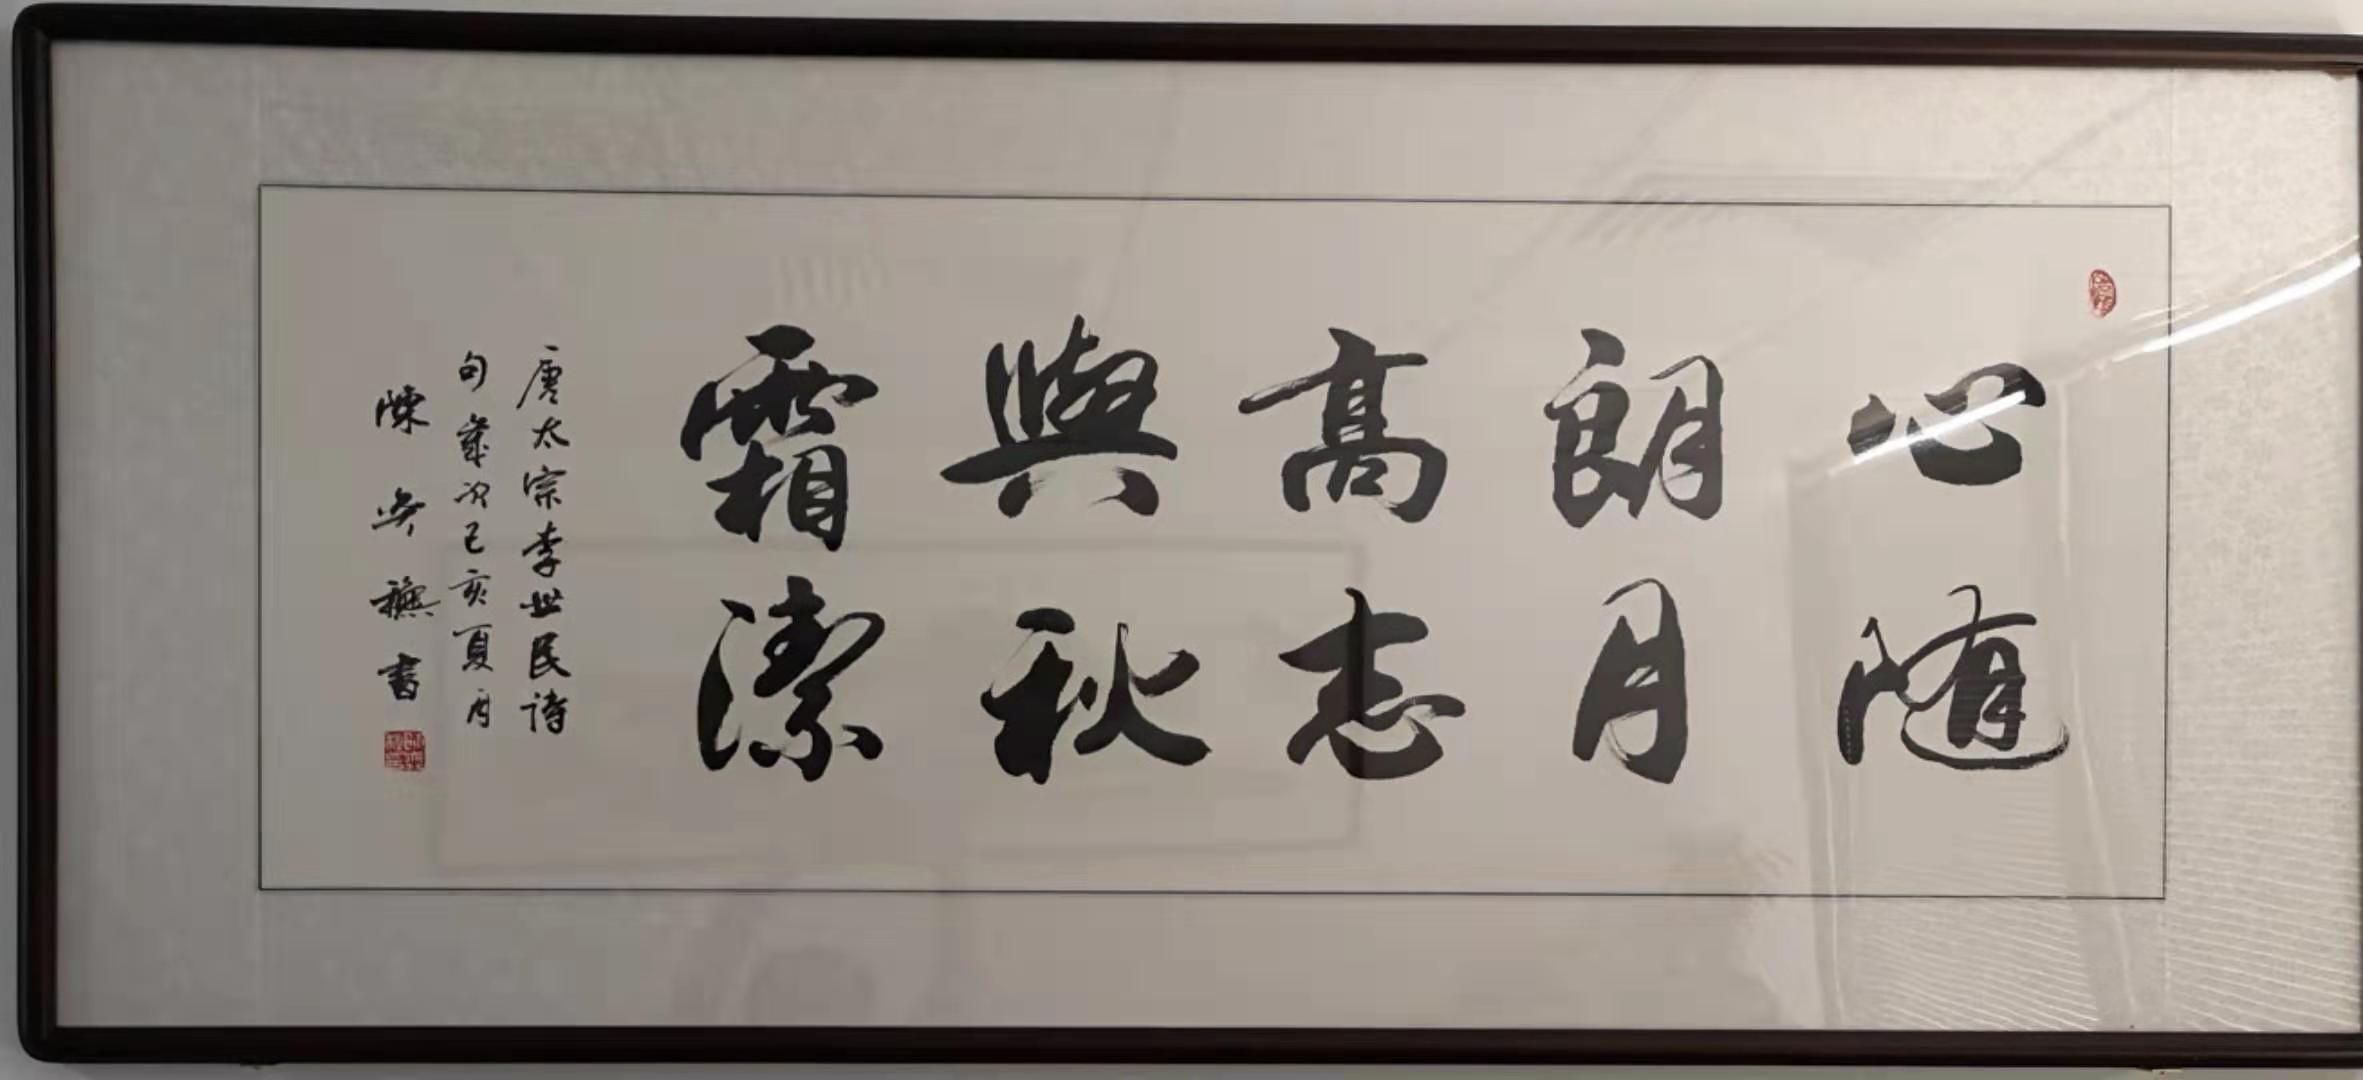 心随
朗月
髙志
與秋
霜潔
唐太宗李世民诗
句歲次己亥夏月
陳書